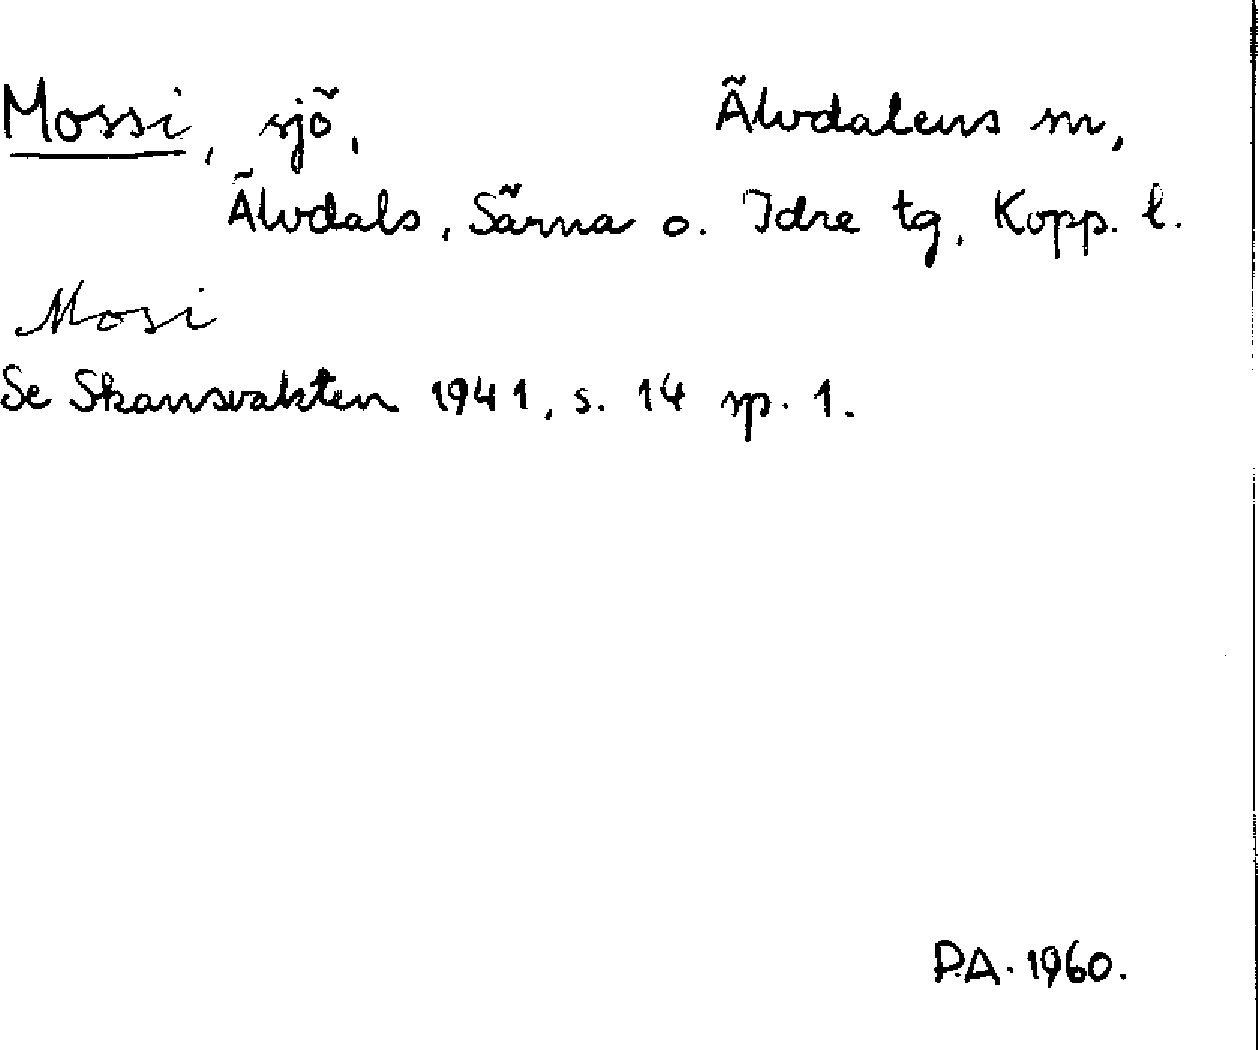 Mossi, sjö, Älvdalens sn,
Älvdals, Särna o. Idre tg, Kopp. l.
Mosi
Se Skansvakten 1941, s. 14 sp. 1.
P.A. 1960.